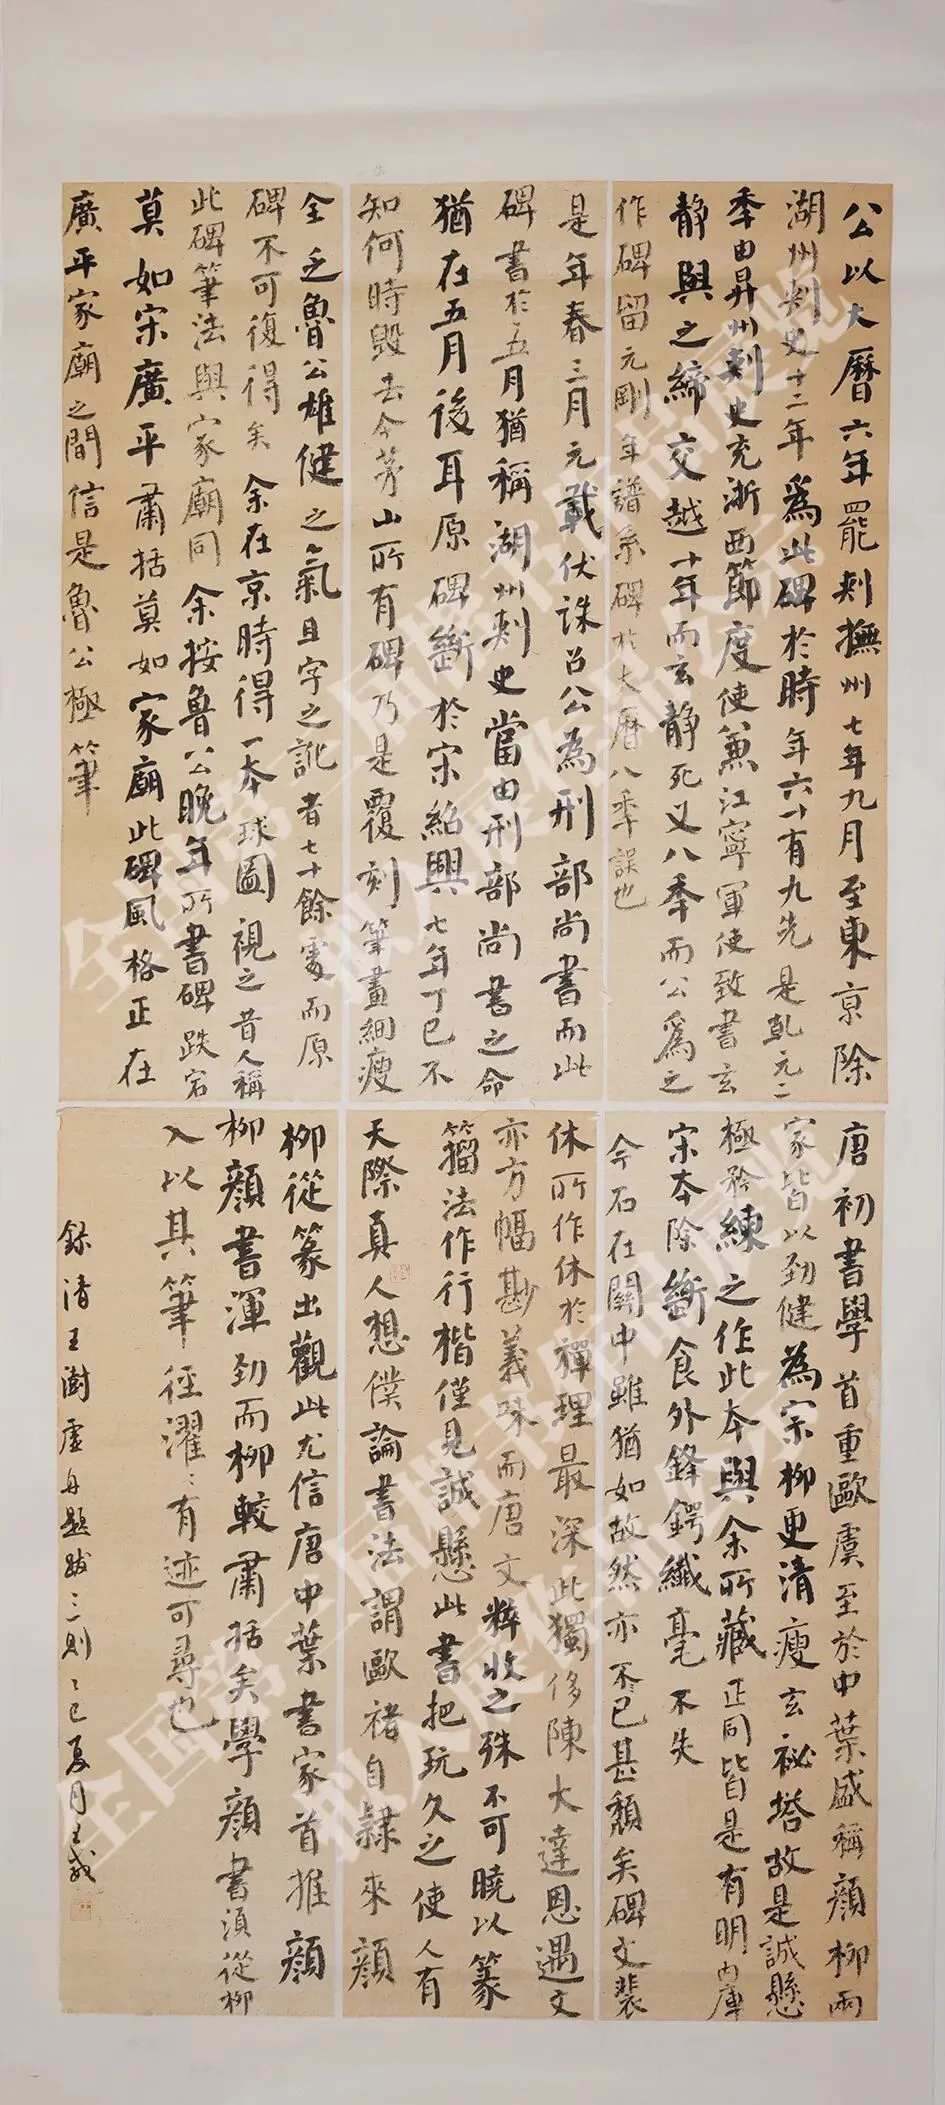 公以大曆六年罷刺撫州七年九月至東京除
湖州刺史十二年為此碑於時年六十有九先是乾元二
季由昇州刺史充浙西節度使兼江寧軍使致書玄
靜與之締交越十年而玄靜死又八季而公為之
作碑留元剛年譜系碑於大曆八季誤也
是年春三月元載伏誅召公為刑部尚書而此
碑書於五月猶稱湖州刺史當由刑部尚書之命
猶在五月後耳原碑斷於宋紹興七年丁巳不
知何時毀去今茅山所有碑乃是覆刻筆畫細瘦
全乏魯公雄健之氣且字之訛者七十餘處而原
碑不可復得矣余在京時得一本球圖視之昔人稱
此碑筆法與家廟同余按魯公晚年所書碑跌宕
莫如宋廣平肅括莫如家廟此碑風格正在
廣平家廟之間信是魯公極筆
唐初書學首重歐虞至於中葉盛稱顏柳兩
家皆以勁健為宗柳更清瘦玄祕塔故是誠懸
極矜練之作此本與余所藏正同皆是有明內庫
宋本除斷食外鋒鍔纖毫不失
今石在關中雖猶如故然亦不已甚頹矣碑文裴
休所作休於禪理最深此獨侈陳大達恩遇文
亦方幅尠義味而唐文粹收之殊不可曉以篆
籀法作行楷僅見誠懸此書把玩久之使人有
天際真人想僕論書法謂歐褚自隸來顏
柳從篆出觀此尤信唐中葉書家首推顏
柳顏書渾勁而柳較肅括矣學顏書須從柳
入以其筆徑濯濯有迹可尋也
錄清王澍虛舟題跋三則乙巳夏月
全国第三届篆书作品展览
拟入展作品公示
全国第三届篆书作品展览
拟入展作品公示